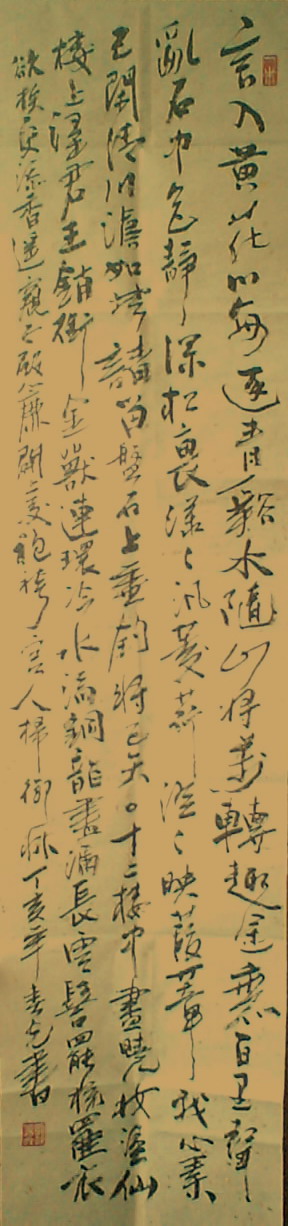 言入黄花川每逐青谿水隨山将萬轉趣途無百里聲
亂石中色靜深松裏漾漾汎菱荇澄澄映葭葦我心素
已閑清川澹如此請留盤石上垂釣將已矣〇十二樓中盡曉妝望仙
樓上望君王鎖銜金獸連環冷水滴銅龍晝漏長雲髻罷梳羅衣
欲换更添香遥窺正殿簾開處袍袴宫人掃御床丁亥年春書